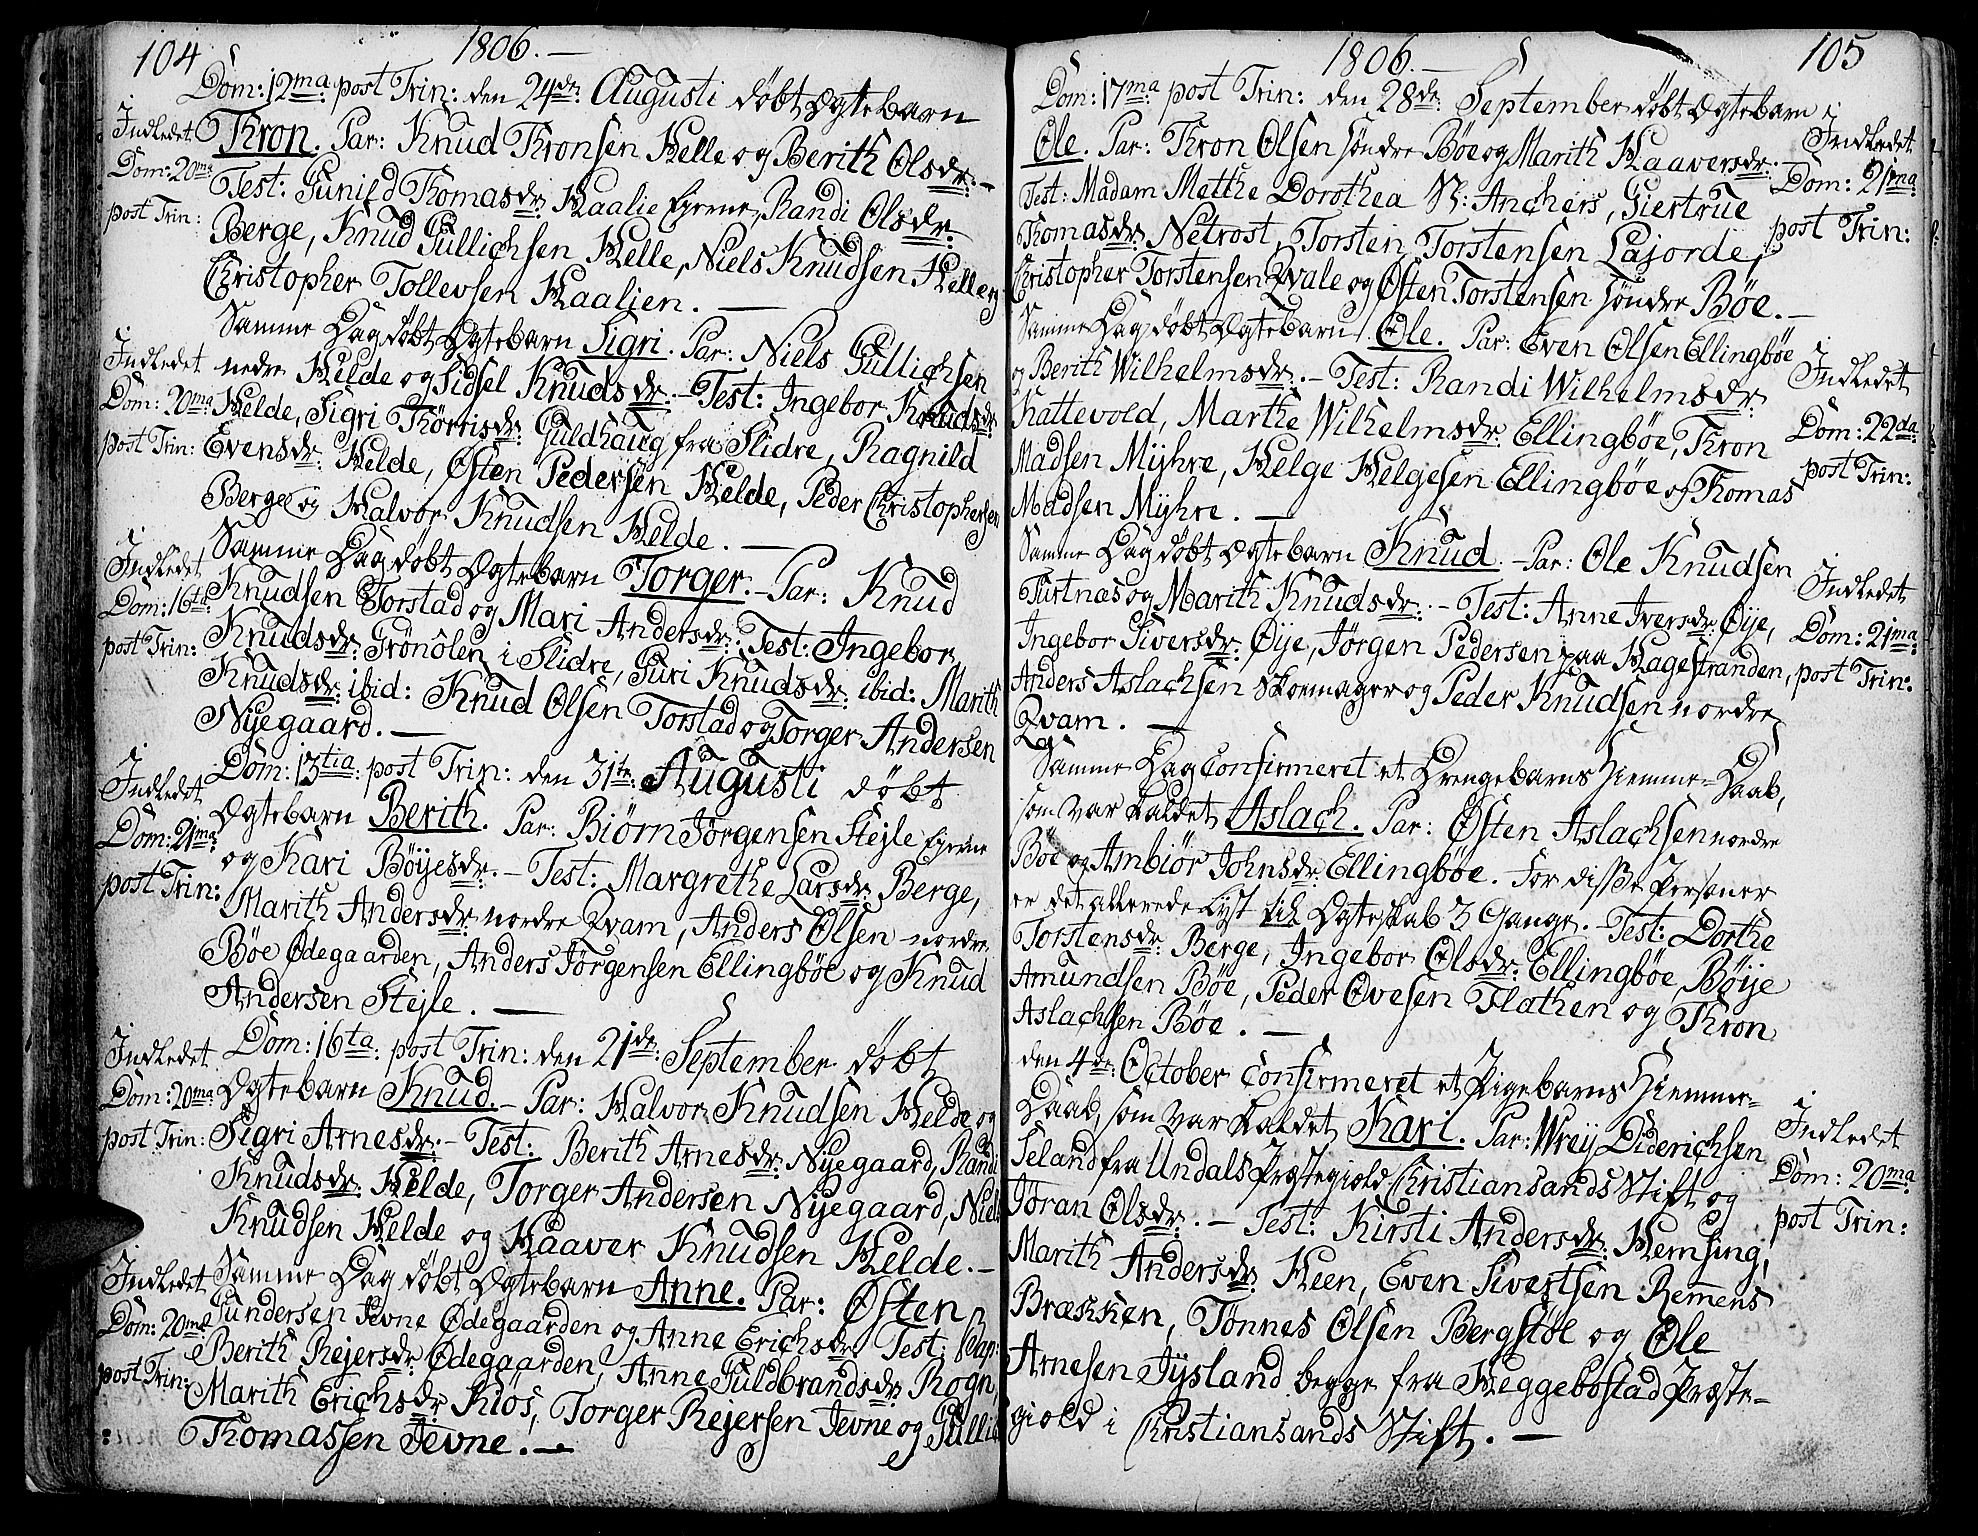 104
1806.
Dom: 12ma post Trin: den 24de Augusti döbt Ægtebarn
Indledet Dom: 20ma post Trin:
Thron. Par: Knud Thronsen Helle og Berith Olsdr: –
Test: Gunild Thomasdr: Haalie Eyerne, Randi Olsdr:
Berge, Knud Gullichsen Helle, Niels Knudsen Helle og
Christopher Tollevsen Haalien. —
Samme Dag döbt Ægtebarn Sigri. Par: Niels Gullichsen
Indledet Dom: 20ma post Trin:
nedre Helde og Sidsel Knudsdr: – Test: Ingebor Knudsdr:
Helde, Sigri Thorrisdr: Guldhaug fra Slidre, Ragnild
Evensdr: Helde, Östen Pedersen Helde, Peder Christophersen
Berge og Halvor Knudsen Helde. —
Samme Dag döbt Ægtebarn Torger. – Par: Knud
Indledet Dom: 16te post Trin:
Knudsen Torstad og Mari Andersdr: Test: Ingebor
Knudsdr: Grönölen i Slidre, Guri Knudsdr: ibid: Marith
Knudsdr: ibid: Knud Olsen Torstad og Torger Andersen
Nyegaard. —
Dom: 13tia: post Trin: den 31te Augusti döbt
Indledet Dom: 21ma post Trin:
Ægtebarn Berith. Par: Biörn Jörgensen Stejle Eyerne
og Kari Böyesdr: – Test: Margrethe Larsdr: Berge,
Marith Andersdr: nordre Qvam, Anders Olsen nordre
Böe Ödegaarden, Anders Jörgensen Ellingböe og Knud
Andersen Stejle. —
Dom: 16ta: post Trin: den 21de September döbt
Indledet Dom: 20ma post Trin:
Ægtebarn Knud. – Par: Halvor Knudsen Helde og
Sigri Arnesdr: – Test: Berith Arnesdr: Nyegaard, Randi
Knudsdr: Helde, Torger Andersen Nyegaard, Niels
Knudsen Helde og Haaver Knudsen Helde. –
Samme Dag döbt Ægtebarn Anne. Par: Östen
Indledet Dom: 20ma post Trin:
Gundersen Jevne Ödegaarden og Anne Erichsdr: Test:
Berith Rejersdr: Ödegaarden, Anne Guldbrandsdr: Rogn,
Marith Erichsdr: Kiös, Torger Rejersen Jevne og Gullik
Thomassen Jevne. —
105
1806. —
Dom: 17ma post Trin: den 28de September döbt Ægtebarn
Indledet Dom: 21ma post Trin:
Ole. Par: Thron Olsen söndre Böe og Marith Haaversdr: –
Test: Madam Methe Dorothea Sl: Anchers, Giertrue
Thomasdr: Netrost, Torsten Torstensen Lajorde,
Christopher Torstensen Qvale og Östen Torstensen söndre Böe. –
Samme Dag döbt Ægtebarn Ole. Par: Even Olsen Ellingböe
Indledet Dom: 22da post Trin:
og Berith Wilhelmsdr: – Test: Randi Wilhelmsdr:
Kattevold, Marthe Wilhelmsdr: Ellingböe, Thron
Madsen Myhre, Helge Helgesen Ellingböe og Thomas
Madsen Myhre. —
Samme Dag döbt Ægtebarn Knud. – Par: Ole Knudsen
Indledet Dom: 21ma post Trin:
Turtnæs og Marith Knudsdr: – Test: Anne Iversdr: Öye,
Ingebor Siversdr: Öye, Jörgen Pedersen paa Hagestranden,
Anders Aslachsen skoemager og Peder Knudsen nordre
Qvam. —
Samme Dag confirmeret et Drengebarns Hiemme-Daab,
som var kaldet Aslach. Par: Östen Aslachsen nordre
Böe og Ambiör Johnsdr: Ellingböe. For disse Personer
er det allerede lyst til Ægteskab 3 Gange. – Test: Dorthe
Torstensdr: Berge, Ingebor Olsdr: Ellingböe, Böye
Amundsen Böe, Peder Ovesen Flathen og Thron
Aslachsen Böe. —
den 4de October confirmeret et Pigebarns Hiemme-
Daab, som var kaldet Kari. Par: Wrej Diderichsen
Indledet Dom: 20ma post Trin:
Seland fra Undals Præstegield Christiansands Stift og
Jöran Olsdr: – Test: Kirsti Andersdr: Hemsing,
Marith Andersdr: Heen, Even Sivertsen Remmens
Brækken, Tönnes Olsen Bergstöe og Ole
Arnesen Tysland begge fra Heggebostad Præste-
gield i Christiansands Stift. —